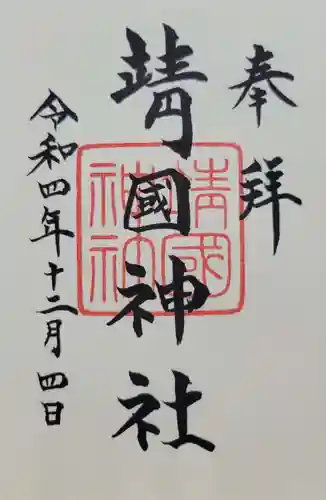 奉拝
靖國神社
靖國神社
令和四年十二月四日